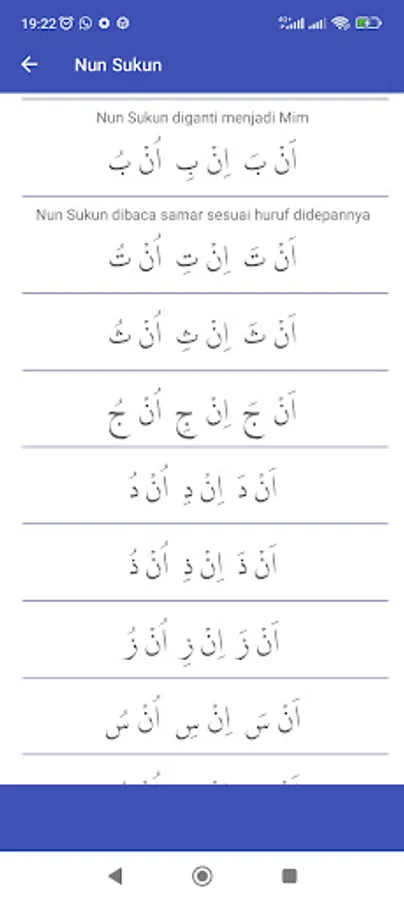 19:22
4G+
Nun Sukun
Nun Sukun diganti menjadi Mim
اَنْ بَ اِنْ بِ اُنْ بُ
Nun Sukun dibaca samar sesuai huruf didepannya
اَنْ تَ اِنْ تِ اُنْ تُ
اَنْ ثَ اِنْ ثِ اُنْ ثُ
اَنْ جَ اِنْ جِ اُنْ جُ
اَنْ دَ اِنْ دِ اُنْ دُ
اَنْ ذَ اِنْ ذِ اُنْ ذُ
اَنْ زَ اِنْ زِ اُنْ زُ
اَنْ سَ اِنْ سِ اُنْ سُ